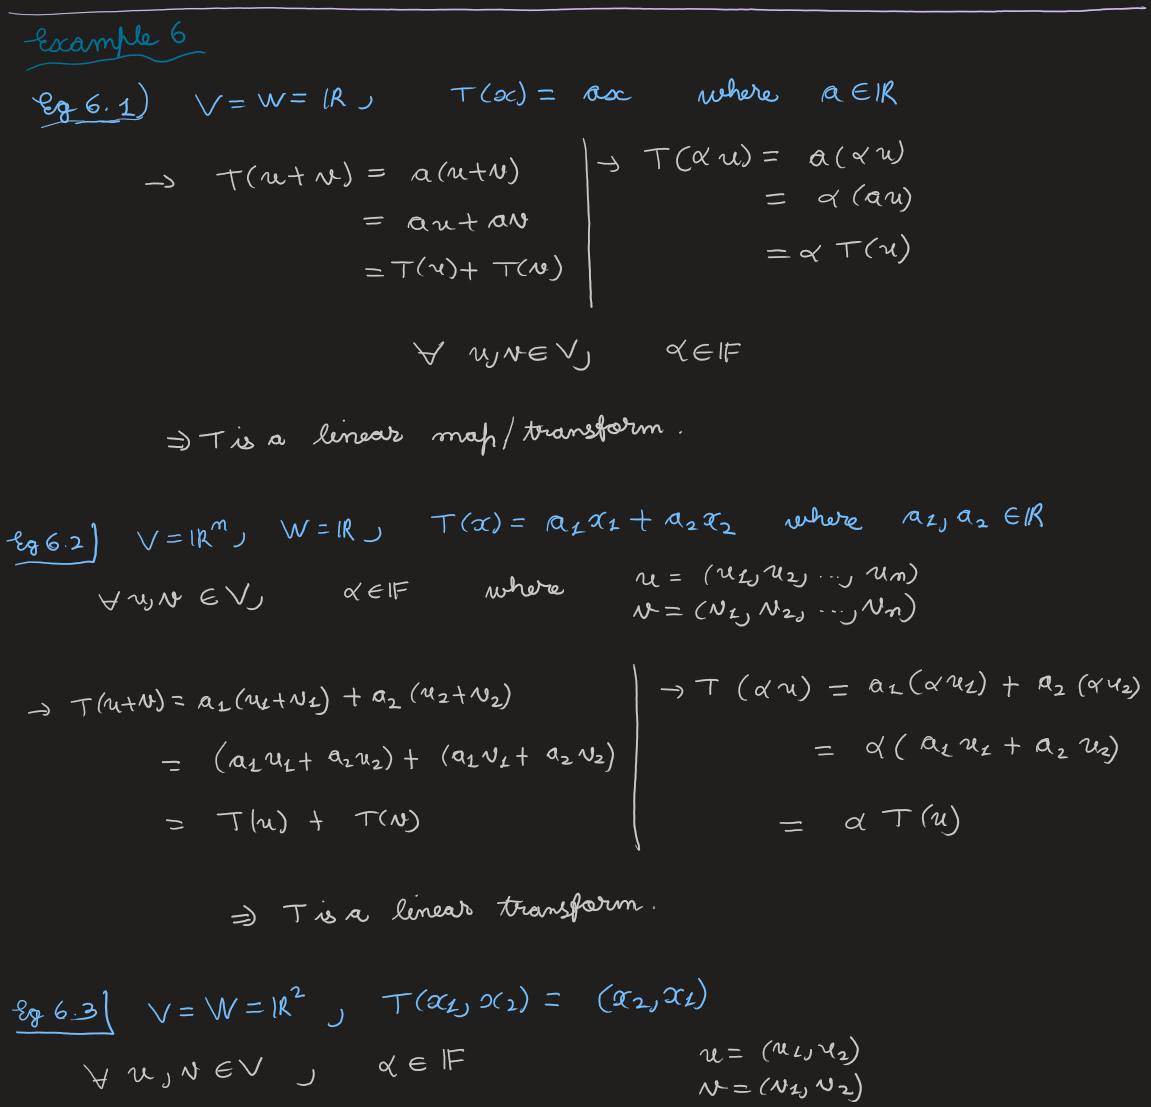 Example 6
Eg 6.1) V = W = ℝ, T(x) = ax where a ∈ ℝ
→ T(u+v) = a(u+v)
= au + av
= T(u) + T(v)
→ T(αu) = a(αu)
= α(au)
= α T(u)
∀ u,v ∈ V, α ∈ 𝔽
⇒ T is a linear map/transform.
Eg 6.2] V = ℝⁿ, W = ℝ, T(x) = a₁x₁ + a₂x₂ where a₁, a₂ ∈ ℝ
∀ u,v ∈ V, α ∈ 𝔽 where u = (u₁, u₂, ..., uₙ)
v = (v₁, v₂, ..., vₙ)
→ T(u+v) = a₁(u₁+v₁) + a₂(u₂+v₂)
= (a₁u₁ + a₂u₂) + (a₁v₁ + a₂v₂)
= T(u) + T(v)
→ T(αu) = a₁(αu₁) + a₂(αu₂)
= α(a₁u₁ + a₂u₂)
= α T(u)
⇒ T is a linear transform.
Eg 6.3] V = W = ℝ², T(x₁, x₂) = (x₂, x₁)
∀ u,v ∈ V, α ∈ 𝔽 u = (u₁, u₂)
v = (v₁, v₂)